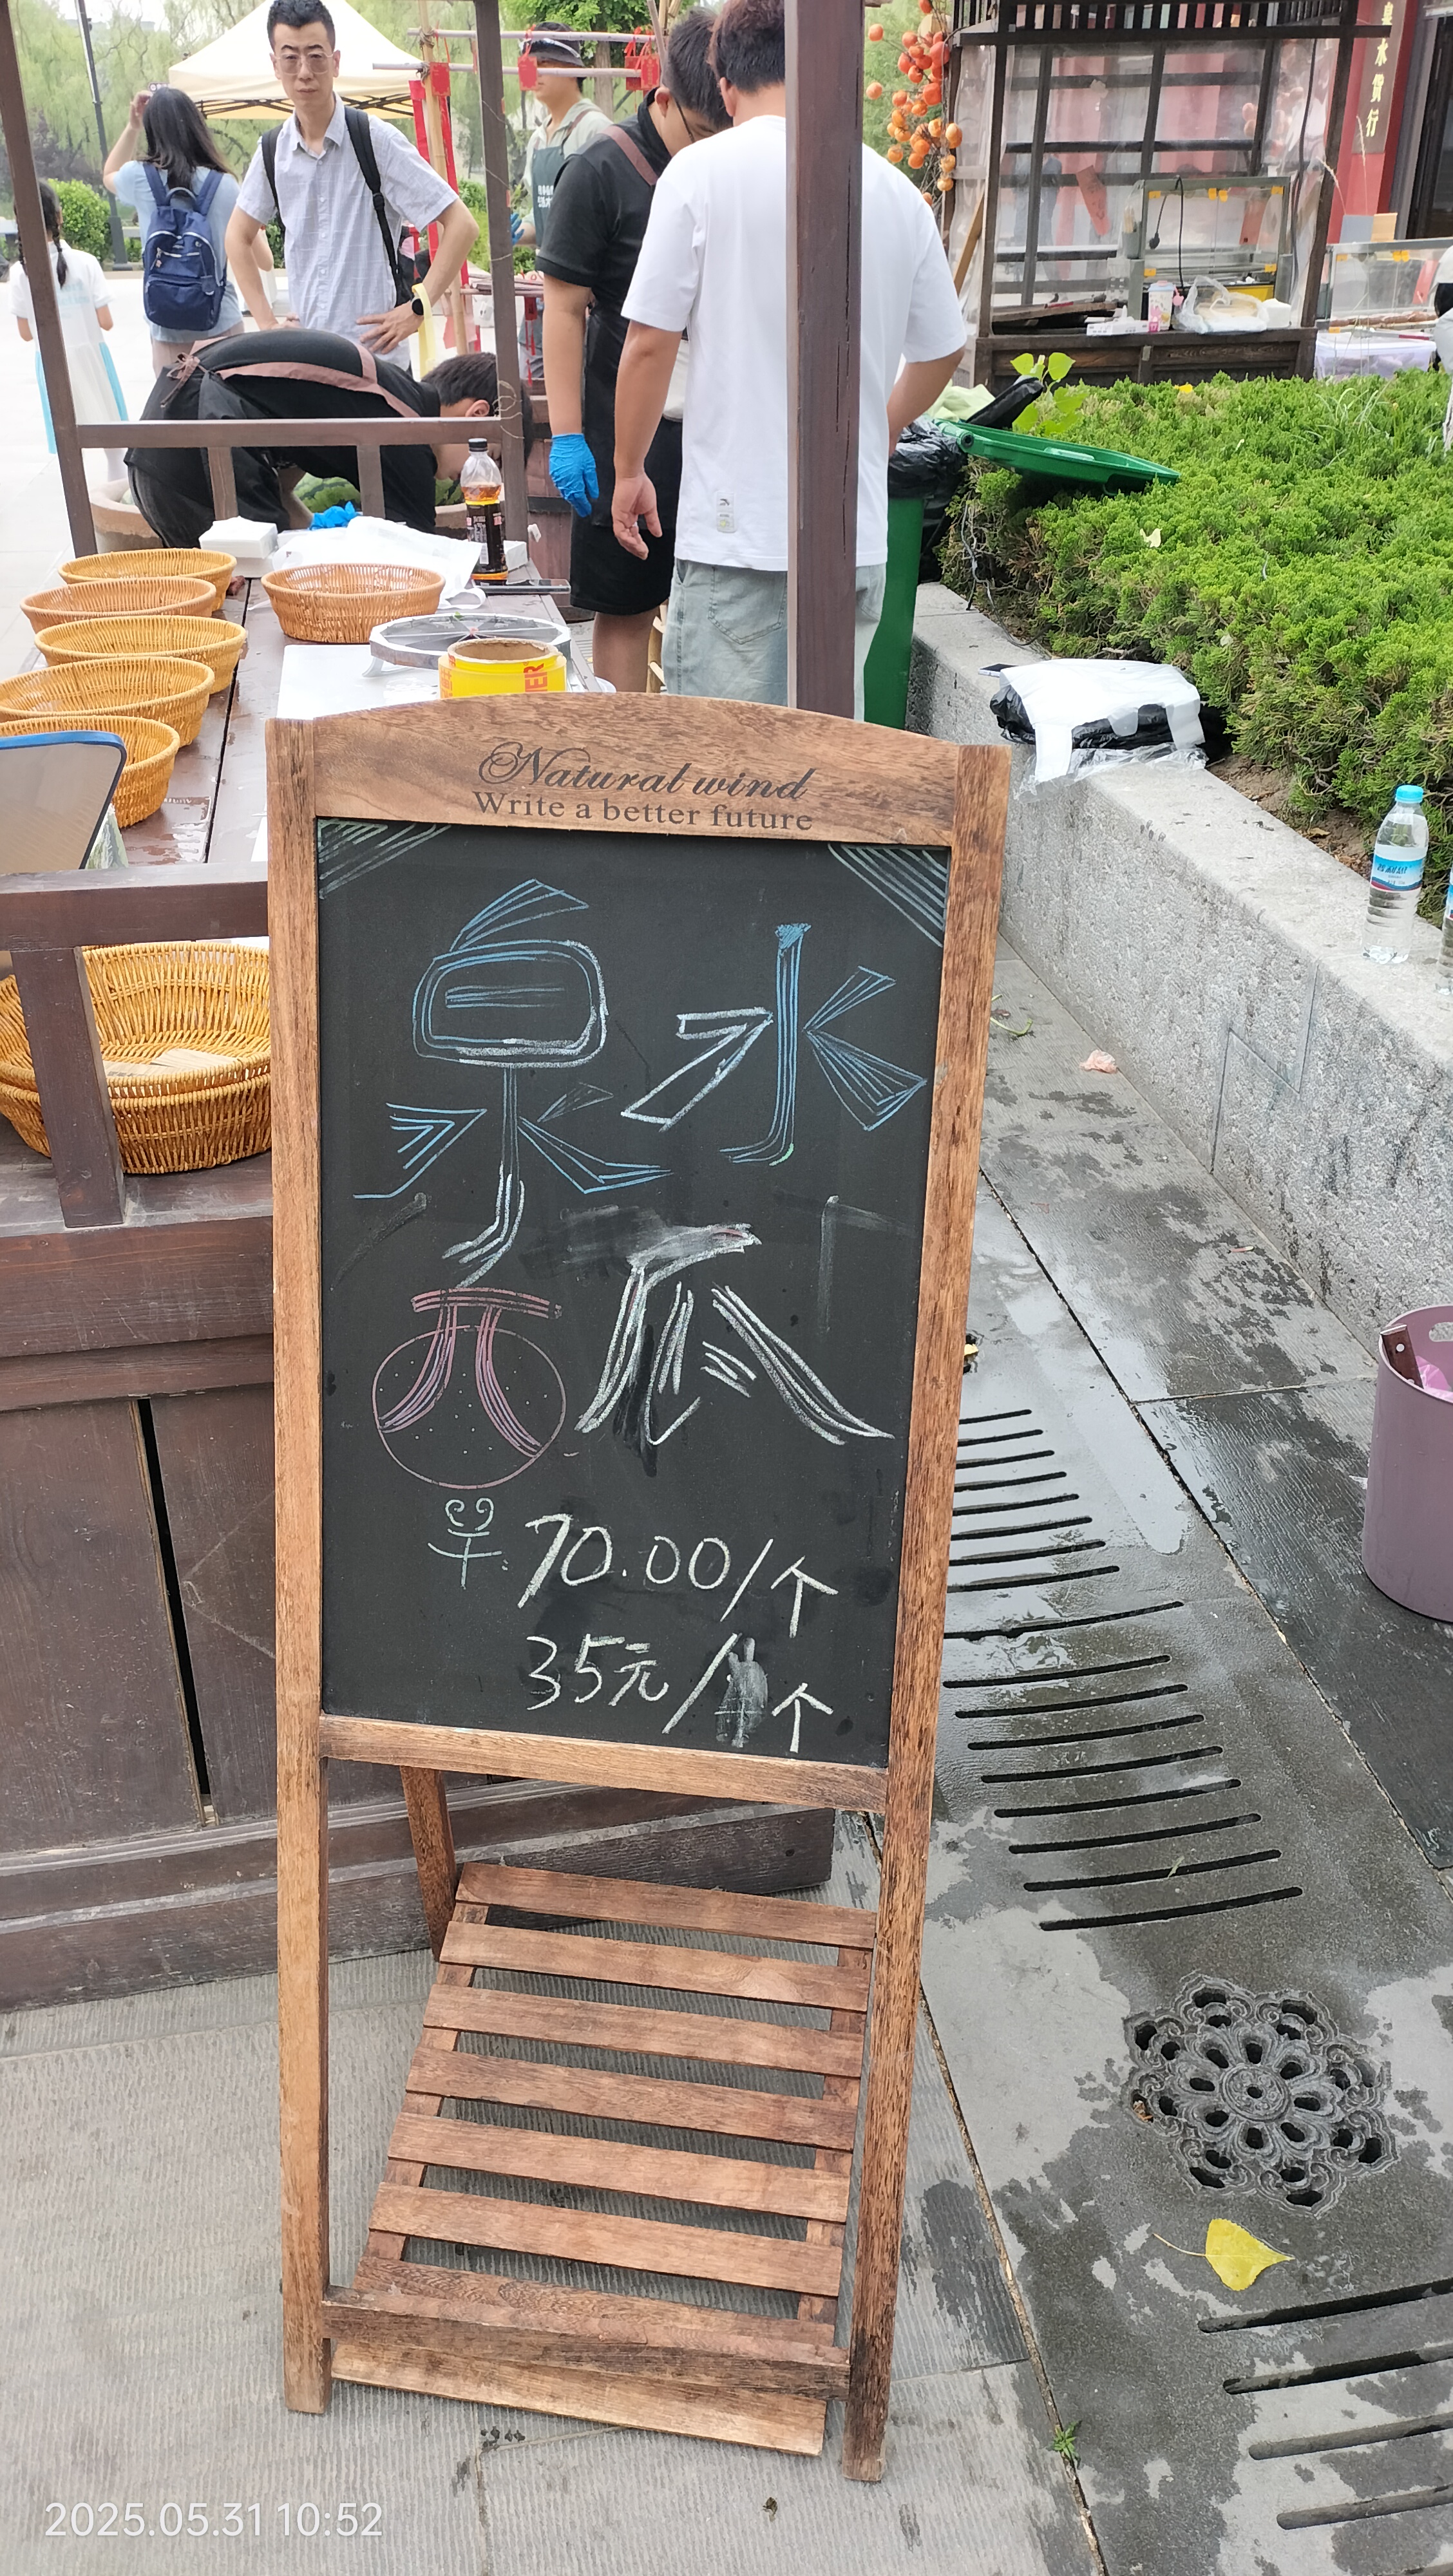 泉水货行
Natural wind
Write a better future
泉水
西瓜
羊70.00/个
35元/半个
2025.05.31 10:52